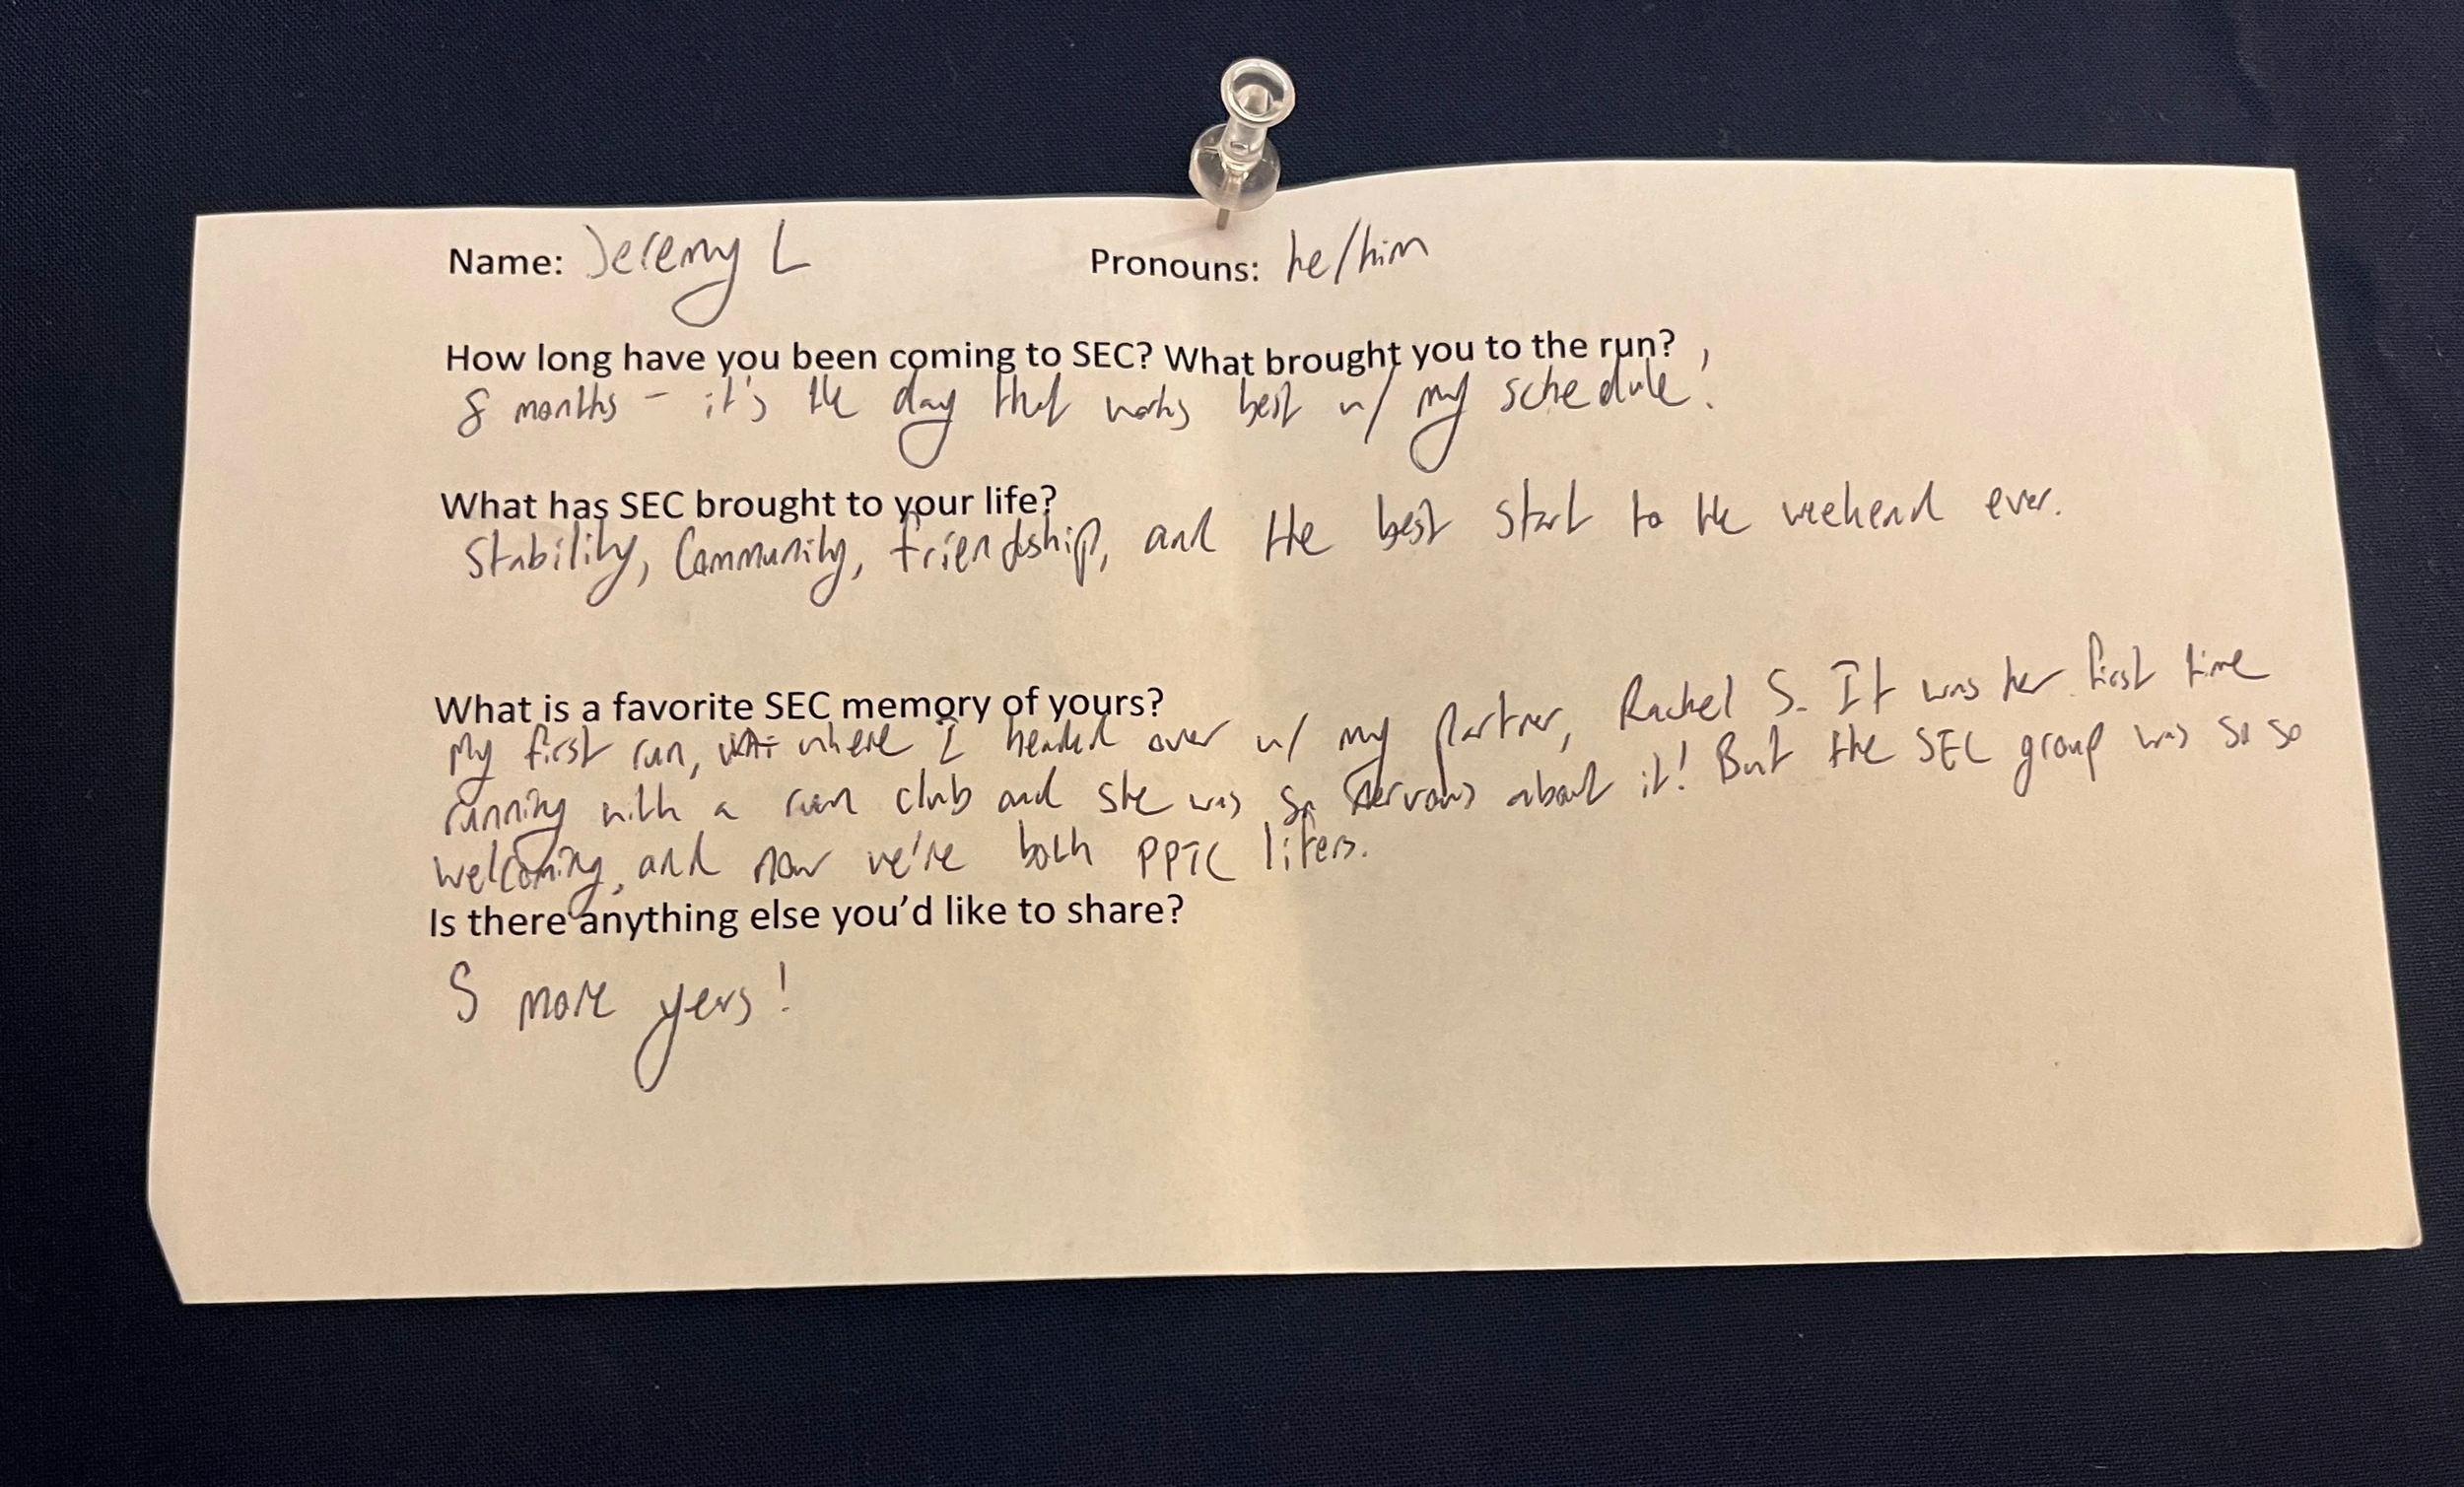 Name: Jeremy L Pronouns: he/him
How long have you been coming to SEC? What brought you to the run?
8 months - it's the day that works best w/ my schedule!
What has SEC brought to your life?
Stability, Community, friendship, and the best start to the weekend ever.
What is a favorite SEC memory of yours?
My first run, where I headed over w/ my partner, Rachel S. It was her first time
running with a run club and she was so nervous about it! But the SEC group was so so
welcoming, and now we're both PPTC lifers.
Is there anything else you'd like to share?
5 more years!